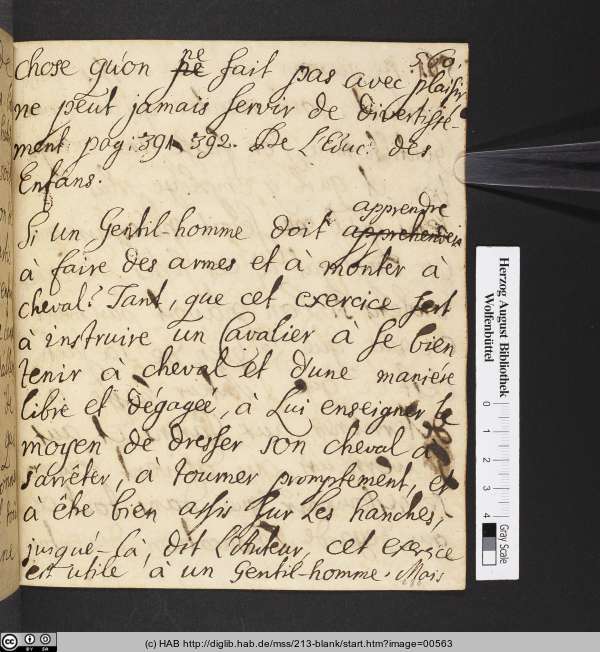 569.
chose qu'on ne fait pas avec plaisir
ne peut jamais servir de divertisse-
ment pag: 391. 392. De L'Educ: des
Enfans.
Si un Gentil-homme doit apprendre
à faire des armes et à monter à
cheval? Tant, que cet exercice sert
à instruire un Cavalier à se bien
tenir à cheval et d'une maniere
libre et dégagée, à Lui enseigner le
moyen de dresser son cheval à
s'arrêter, à tourner promptement, et
à être bien assis sur Les hanches,
jusqué-là, dit L'Auteur, cet exercice
est utile à un Gentil-homme. Mais
Herzog August Bibliothek
Wolfenbüttel
0 1 2 3 4
Gray Scale
(c) HAB http://diglib.hab.de/mss/213-blank/start.htm?image=00563